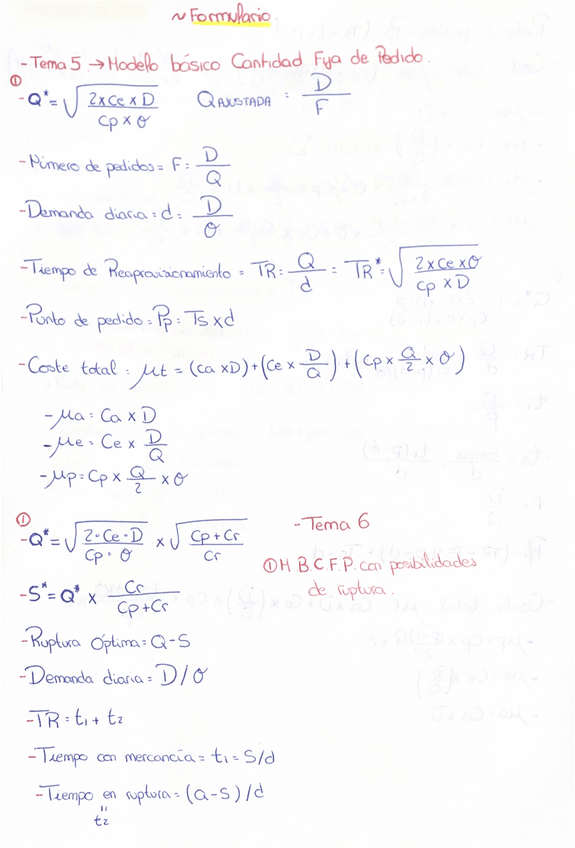 ~ Formulario.
- Tema 5 → Modelo básico Cantidad Fija de Pedido.
①
- Q* = √(2 x Ce x D / Cp x θ)   Q AJUSTADA : D / F
- Número de pedidos = F : D / Q
- Demanda diaria : d : D / θ
- Tiempo de Reaprovisionamiento = TR : Q / d = TR* : √(2 x Ce x θ / Cp x D)
- Punto de pedido : Pp : Ts x d
- Coste total : μt = (Ca x D) + (Ce x D/Q) + (Cp x Q/2 x θ)
- μa : Ca x D
- μe : Ce x D/Q
- μp : Cp x Q/2 x θ
- Tema 6
①
- Q* = √(2 · Ce · D / Cp · θ) x √(Cp + Cr / Cr)
① H B.C.F.P. con posibilidades
de ruptura.
- S* = Q* x Cr / Cp + Cr
- Ruptura Óptima = Q - S
- Demanda diaria = D / θ
- TR = t1 + t2
- Tiempo con mercancía = t1 = S/d
- Tiempo en ruptura = (Q - S) / d
"
t2